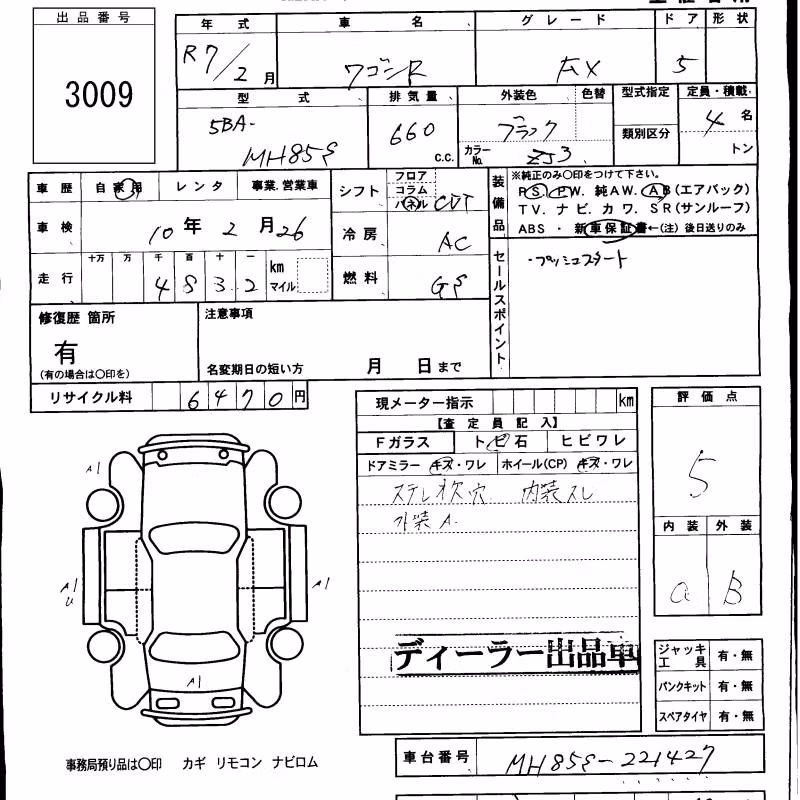 出品番号
3009
年式 車名 グレード ドア 形状
R7/2月 ワゴンR FX 5
型式 排気量 外装色 色替 型式指定 定員・積載
5BA-
MH85S 660 C.C. ブラック 類別区分 4名
カラーNo. ZJ3 トン
車歴 自家用 レンタ 事業.営業車
シフト フロア コラム パネル CVT
装備品 ※純正のみ○印をつけて下さい。
PS. PW. 純AW. AB(エアバック)
TV. ナビ. カワ. SR(サンルーフ)
ABS ・ 新車保証書←(注) 後日送りのみ
車検 10年2月26
冷房 AC
走行 十万 万 千 百 十 一
4832 km マイル
燃料 GS
セールスポイント
・プッシュスタート
修復歴 箇所
有
(有の場合は○印を)
注意事項
名変期日の短い方 月 日まで
リサイクル料 6470円
現メーター指示 km
【査定員記入】
Fガラス トビ石 ヒビワレ
ドアミラー キズ・ワレ ホイール(CP) キズ・ワレ
内装スレ
外装A
評価点
5
内装 外装
a B
A1
A1
U
A1
A1
ディーラー出品車
ジャッキ工具 有・無
パンクキット 有・無
スペアタイヤ 有・無
事務局預り品は○印 カギ リモコン ナビロム
車台番号 MH85S-221427